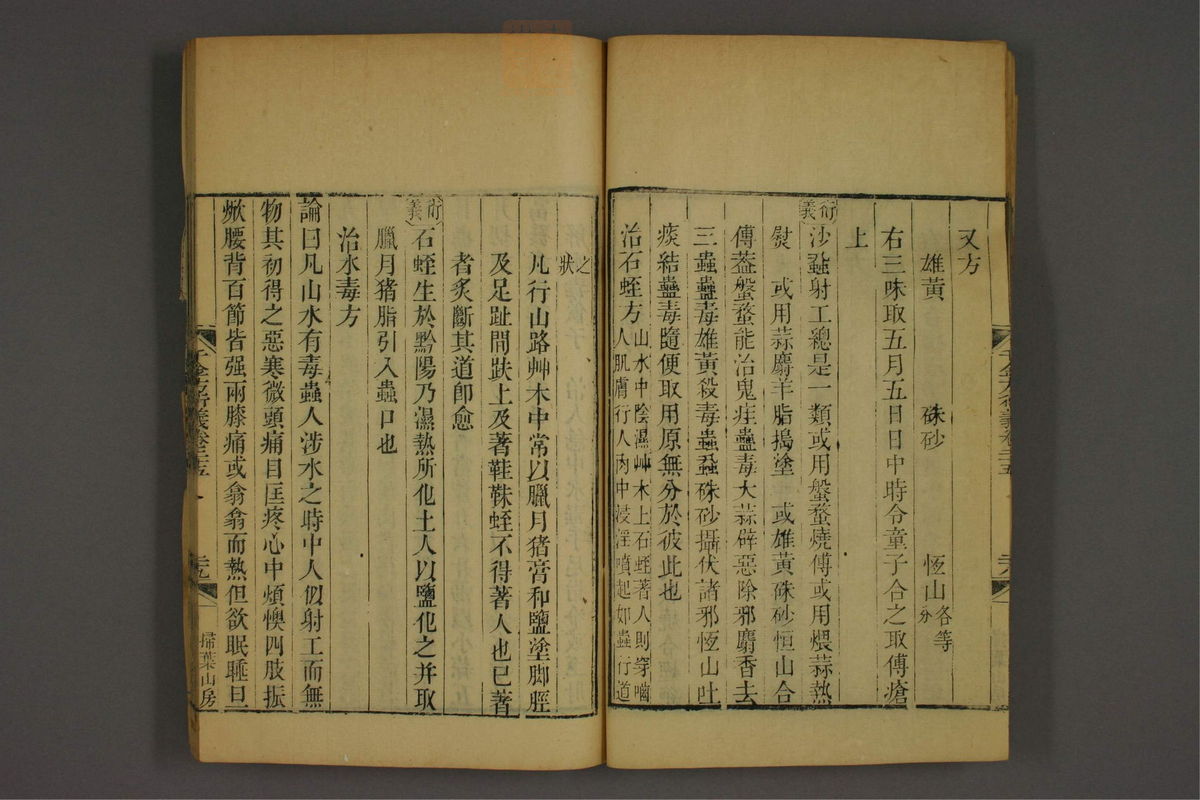 又方
雄黃 硃砂 恆山各等分
右三味取五月五日日中時令童子合之取傅瘡
上
衍義
沙蝨射工總是一類或用盤蝥燒傅或用煨蒜熱
熨 或用蒜麝羊脂搗塗 或雄黃硃砂恒山合
傅葢盤蝥能治鬼疰蠱毒大蒜辟惡除邪麝香去
三蟲蠱毒雄黃殺毒蟲蝨硃砂攝伏諸邪恆山吐
痰結蠱毒隨便取用原無分於彼此也
治石蛭方山水中陰濕艸木上石蛭著人則穿嚙
人肌膚行人肉中浸淫噴起如蟲行道
千金方衍義卷二十五
之狀
凡行山路艸木中常以臘月猪膏和鹽塗脚脛
及足趾間趺上及著鞋韈蛭不得著人也已著
者炙斷其道卽愈
衍義
石蛭生於黔陽乃濕熱所化土人以鹽化之幷取
臘月猪脂引入蟲口也
治水毒方
論曰凡山水有毒蟲人涉水之時中人似射工而無
物其初得之惡寒微頭痛目匡疼心中煩懊四肢振
焮腰背百節皆强兩膝痛或翁翁而熱但欲眠睡旦
千金方衍義卷二十五
掃葉山房